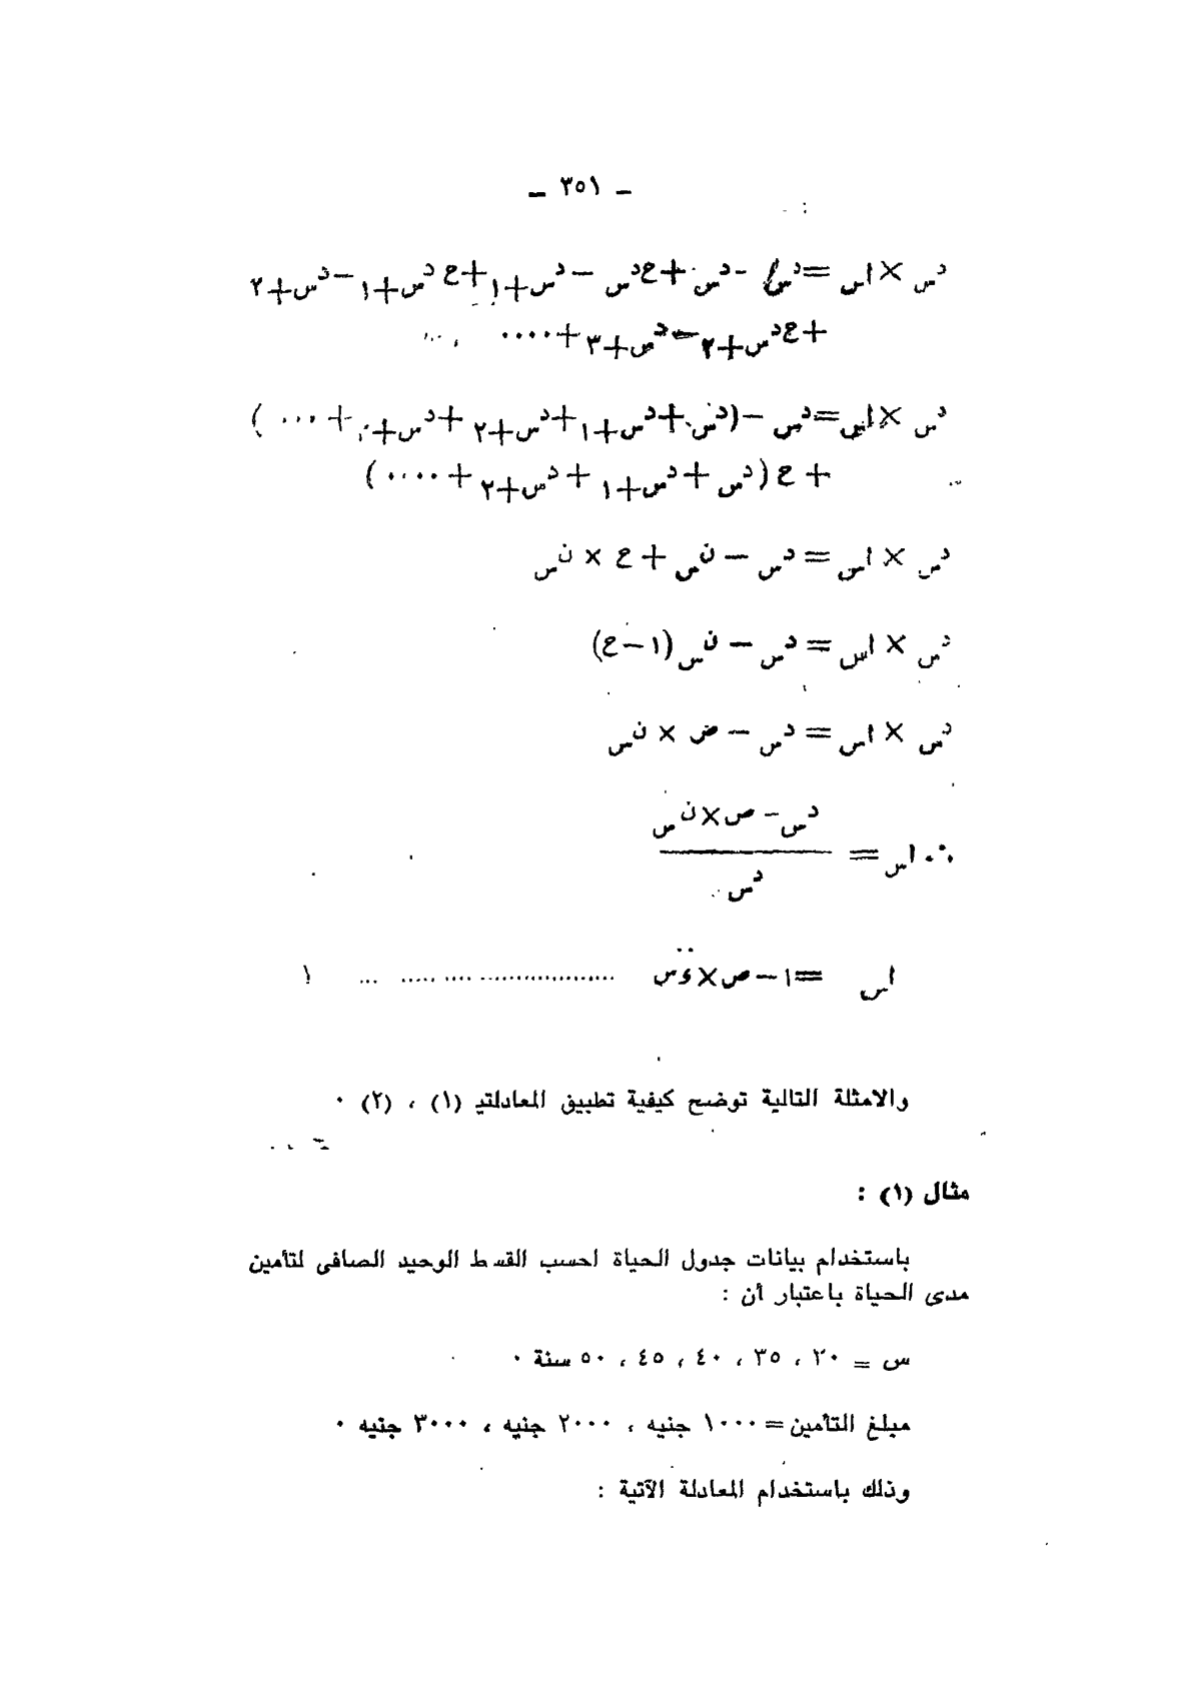 ـ ٣٥١ ـ
د س × ا س = د س - د س + ع د س - د س+١ + ع د س+١ - د س+٢
+ ع د س+٢ - د س+٣ + ٠٠٠٠
د س × ا س = د س - (د س + د س+١ + د س+٢ + د س+ + ٠٠٠ )
+ ع (د س + د س+١ + د س+٢ + ٠٠٠٠ )
د س × ا س = د س - ن س + ع × ن س
د س × ا س = د س - ن س (١ - ع)
د س × ا س = د س - ض × ن س
د س - ص × ن س
∴ ا س = ــــــــــــــــ
د س
ا س = ١ - ص × ءَ س .............................. ١
والامثلة التالية توضح كيفية تطبيق المعادلتي (١) ، (٢) ٠
مثال (١) :
باستخدام بيانات جدول الحياة احسب القسط الوحيد الصافى لتأمين
مدى الحياة باعتبار أن :
س = ٢٠ ، ٣٥ ، ٤٠ ، ٤٥ ، ٥٠ سنة ٠
مبلغ التأمين = ١٠٠٠ جنيه ، ٢٠٠٠ جنيه ، ٣٠٠٠ جنيه ٠
وذلك باستخدام المعادلة الآتية :